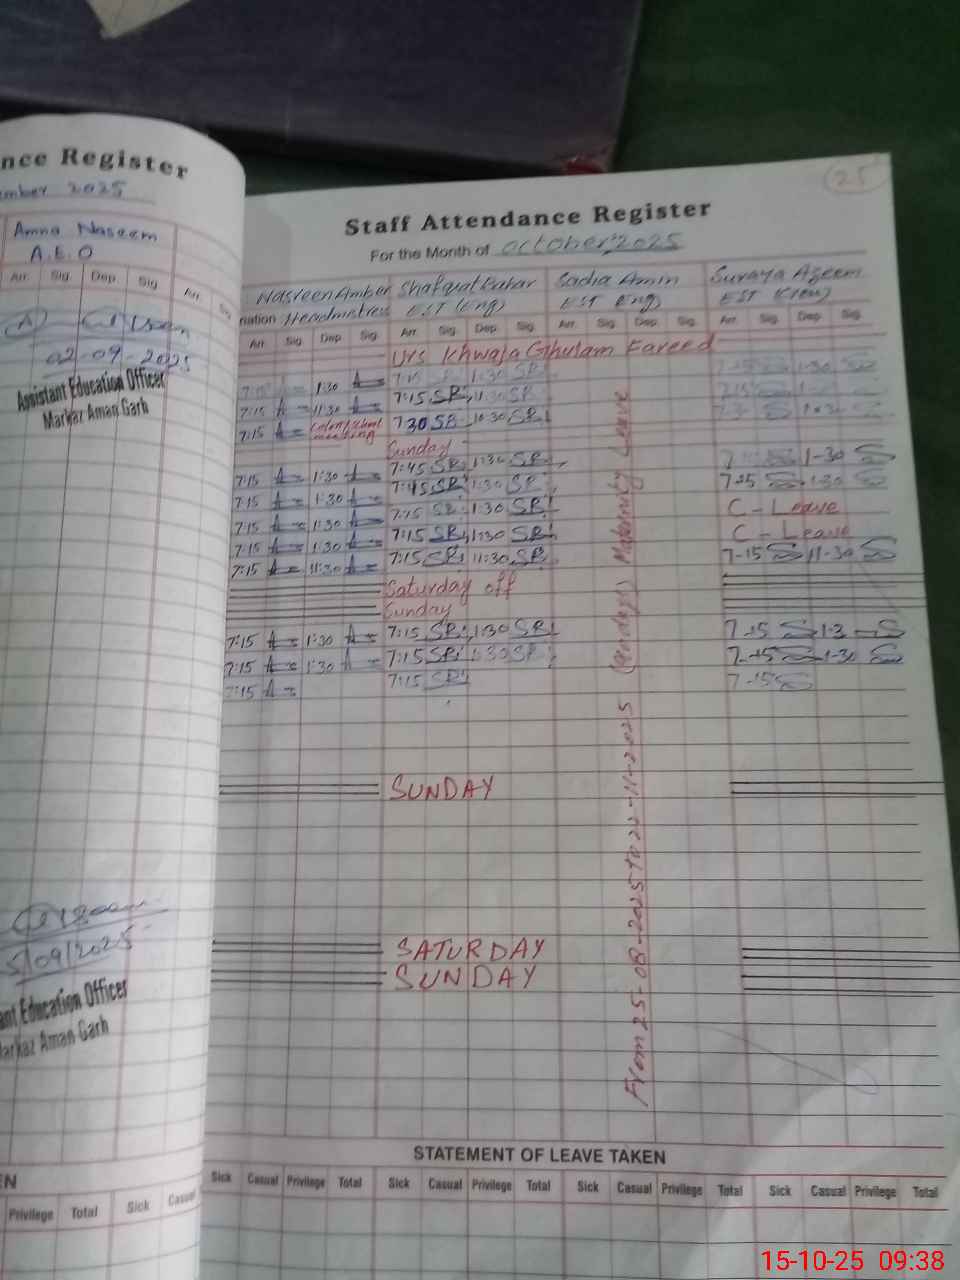 nce Register
mber 2025
Amna Naseem
A.E.O
Arr. Sig. Dep. Sig. Arr. Sig.
02-09-2025
Assistant Education Officer
Markaz Aman Garh
5/09/2025
ant Education Officer
Markaz Aman Garh
EN
Privilege Total Sick Casual
25
Staff Attendance Register
For the Month of october 2025
Nasreen Amber Shafquat Bahar Sadia Amin Suraya Azeem
nation Headmistress EST (Eng) EST Eng)
Arr. Sig. Dep. Sig. Arr. Sig. Dep. Sig. Arr. Sig. Dep. Sig. Arr. Sig. Dep. Sig.
Urs Khwaja Ghulam Fareed
7:15 1:30 7:15 SB 1:30 SB
7:15 11:30 7:15 SB 1:30 SB
7:15 meeting 7:30 SB 10:30 SB
Sunday
7:15 1:30 7:45 SB 1:30 SB 1-30
7:15 1:30 7:45 SB 1:30 SB 7-15 1-30
7:15 11:30 7:15 SB 1:30 SB C - Leave
7:15 1:30 7:15 SB 1:30 SB C - Leave
7:15 11:30 7:15 SB 11:30 SB 7-15 11-30
Saturday off
Sunday
7:15 1:30 7:15 SB 1:30 SB 7-15 1-3
7:15 1:30 7:15 SB 1:30 SB 7-15 1-30
7:15 7:15 SB 7-15
SUNDAY
SATURDAY
SUNDAY
From 25-08-2025 to 22-11-2025 (90 days) Maternity Leave
STATEMENT OF LEAVE TAKEN
Sick Casual Privilege Total Sick Casual Privilege Total Sick Casual Privilege Total Sick Casual Privilege Total
15-10-25 09:38